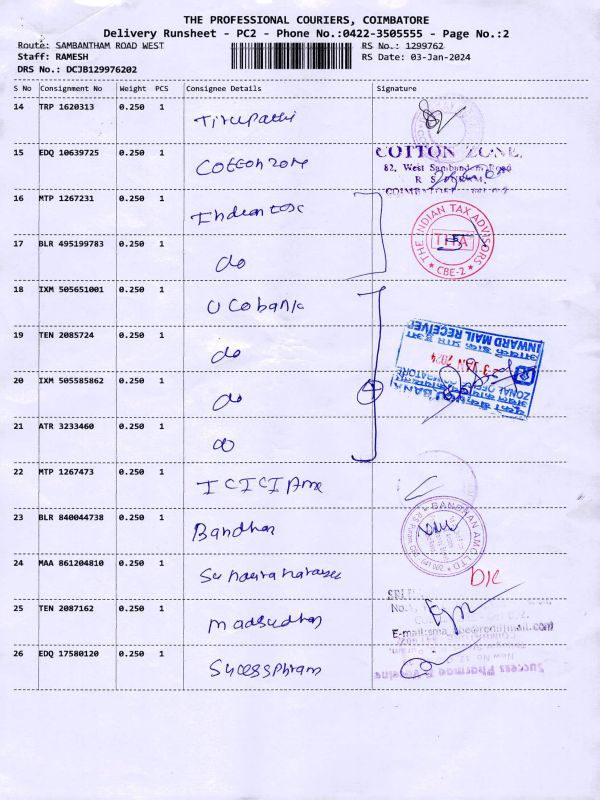 THE PROFESSIONAL COURIERS, COIMBATORE
Delivery Runsheet - PC2 - Phone No.:0422-3505555 - Page No.:2
Route: SAMBANTHAM ROAD WEST RS No.: 1299762
Staff: RAMESH RS Date: 03-Jan-2024
DRS No.: DCJB129976202
S No Consignment No Weight PCS Consignee Details Signature
14 TRP 1620313 0.250 1 Tirupathi
15 EDQ 10639725 0.250 1 Cottonzone
COTTON ZONE,
82, West Sambandam Road
R S
16 MTP 1267231 0.250 1 Indiantax
THE INDIAN TAX ADVISORS
TITA
CBE-2
17 BLR 495199783 0.250 1 do
18 IXM 505651001 0.250 1 Ucobank
19 TEN 2085724 0.250 1 do
INWARD MAIL RECEIVED
3 JAN 2024
ZONAL OFFICE
COIMBATORE
20 IXM 505585862 0.250 1 do
4
21 ATR 3233460 0.250 1 do
22 MTP 1267473 0.250 1 ICICI
23 BLR 840044738 0.250 1 Bandhan
BANDHAN AMC LTD
24 MAA 861204810 0.250 1
D/L
25 TEN 2087162 0.250 1 Madsudhan
26 EDQ 17580120 0.250 1 Sucessphram
Success Pharma &